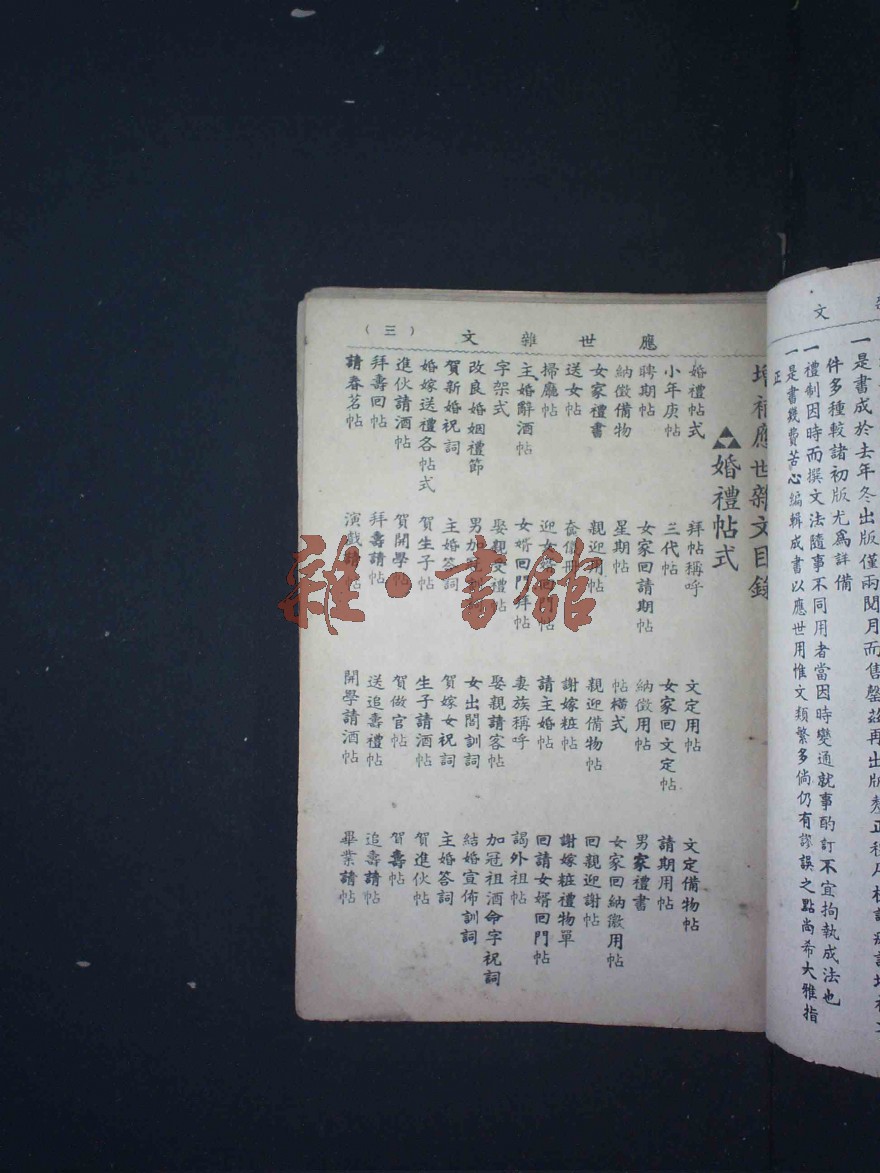 一是書成於去年冬出版僅兩閱月而售罄茲再出版
件多種較諸初版尤爲詳備
一禮制因時而撰文法隨事不同用者當因時變通就事酌訂不宜拘執成法也
一是書幾費苦心編輯成書以應世用惟文類繁多倘仍有謬誤之點尚希大雅指
正
應世雜文
（三）
增補應世雜文目錄
婚禮帖式
婚禮帖式 拜帖稱呼 文定用帖 文定備物帖
小年庚帖 三代帖 女家回文定帖 請期用帖
聘期帖 女家回請期帖 納徵用帖 男家禮書
納徵備物 星期帖 帖橫式 女家回納徵用帖
女家禮書 親迎用帖 親迎備物帖 回親迎謝帖
送女帖 奩儀 謝嫁粧帖 謝嫁粧禮物單
掃廳帖 迎女婿回門帖 請主婚帖 回請女婿回門帖
主婚辭酒帖 女婿回門拜帖 妻族稱呼 謁外祖帖
字架式 娶親受禮帖 娶親請客帖 加冠祖酒命字祝詞
改良婚姻禮節 男加冠訓詞 女出閣訓詞 結婚宣佈訓詞
賀新婚祝詞 主婚答詞 賀嫁女祝詞 主婚答詞
婚嫁送禮各帖式 賀生子帖 生子請酒帖 賀進伙帖
進伙請酒帖 賀開學帖 賀做官帖 賀壽帖
拜壽回帖 拜壽請帖 送追壽禮帖 追壽請帖
請春茗帖 演戲請帖 開學請酒帖 畢業請帖
雜·書館